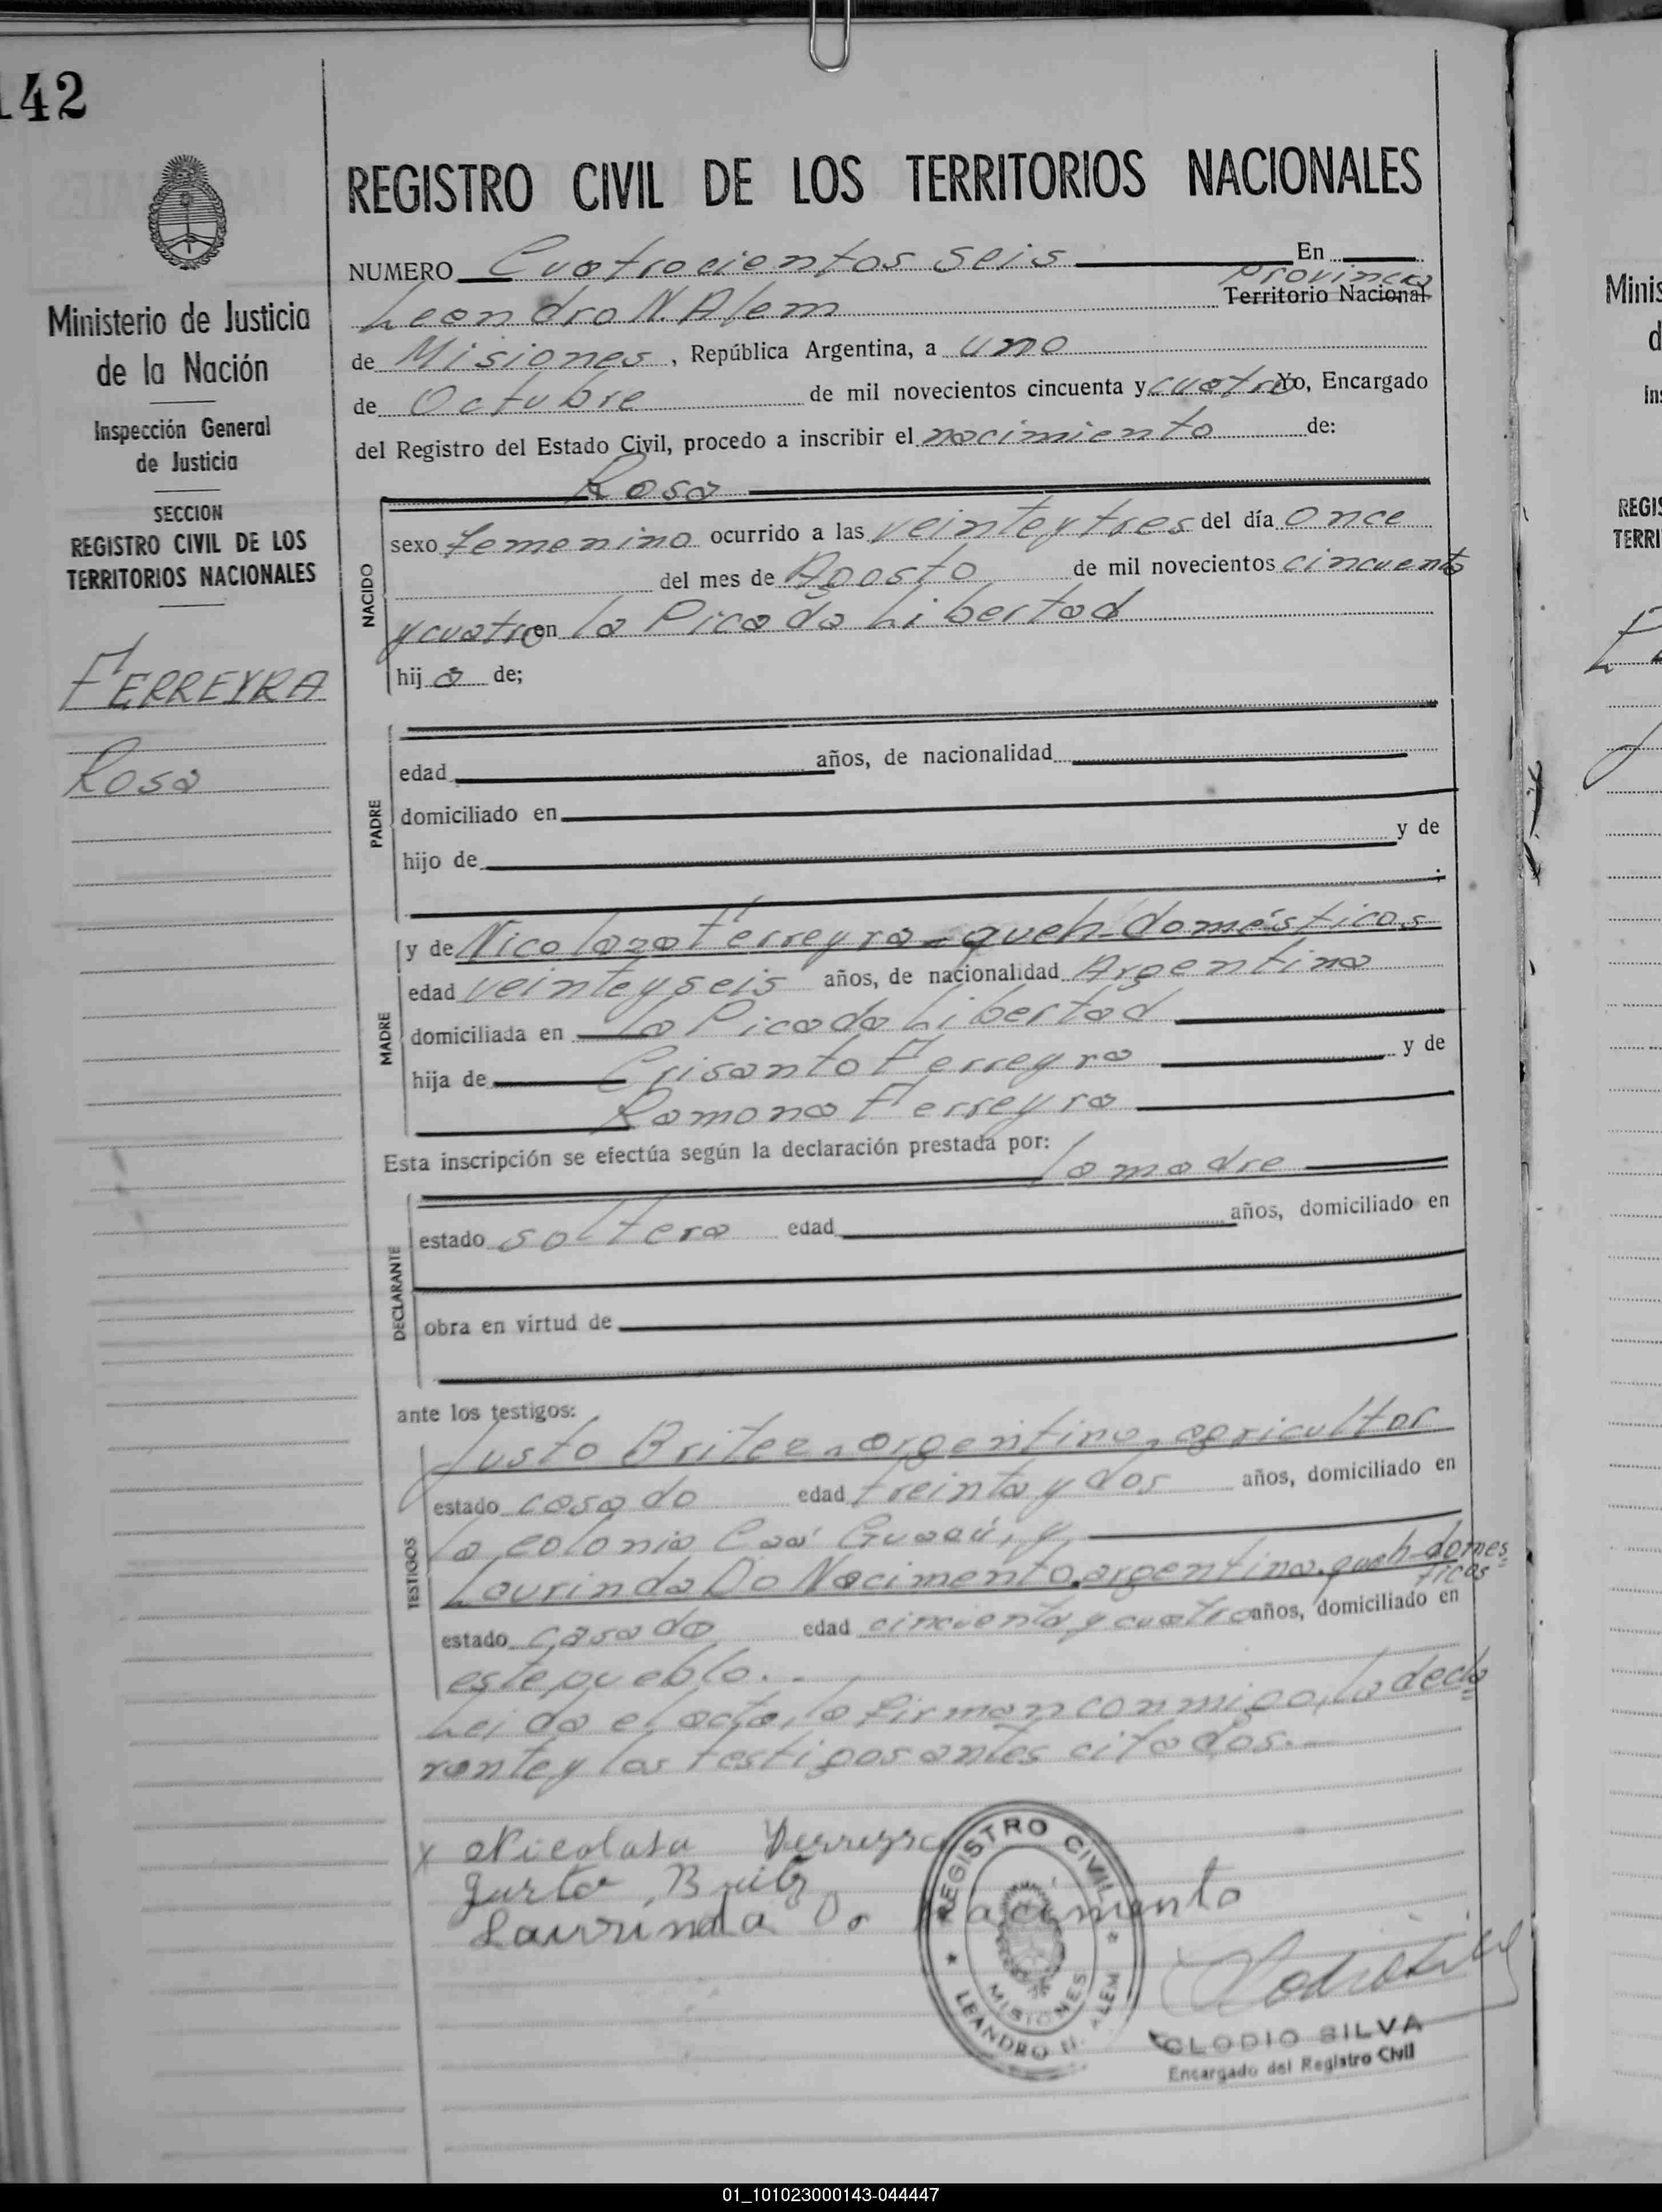 142
Ministerio de Justicia
de la Nación
Inspección General
de Justicia
SECCION
REGISTRO CIVIL DE LOS
TERRITORIOS NACIONALES
FERREYRA
Rosa
REGISTRO CIVIL DE LOS TERRITORIOS NACIONALES
NUMERO Cuatrocientos seis En
Provincia
Leandro N. Alem Territorio Nacional
de Misiones, República Argentina, a uno
de Octubre de mil novecientos cincuenta y cuatro Yo, Encargado
del Registro del Estado Civil, procedo a inscribir el nacimiento de:
Rosa
NACIDO
sexo femenino ocurrido a las veinteytres del día once
del mes de Agosto de mil novecientos cincuenta
y cuatro en la Picada Libertad
hija de;
PADRE
edad años, de nacionalidad
domiciliado en
hijo de y de
MADRE
y de Nicolaza Ferreyra - queh-domésticos
edad veinteyseis años, de nacionalidad Argentina
domiciliada en la Picada Libertad
hija de Crisanto Ferreyra y de
Ramona Ferreyra
Esta inscripción se efectúa según la declaración prestada por: la madre
DECLARANTE
estado soltera edad años, domiciliado en
obra en virtud de
ante los testigos:
TESTIGOS
Justo Britez, argentino, agricultor
estado casado edad treinta y dos años, domiciliado en
la colonia Caá Guazú, y
Laurinda Do Nacimento, argentina, queh-domes=
ticos
estado casada edad cincuenta y cuatro años, domiciliado en
este pueblo.
Leida el acta, la firman conmigo, la decla=
rante y los testigos antes citados.-
x Nicolasa Ferreyra
Justo Britez
Laurinda Do Nacimento
REGISTRO CIVIL
MISIONES
LEANDRO N. ALEM
CLODIO SILVA
Encargado del Registro Civil
Minis
d
In
REGIS
TERRI
01_101023000143-044447